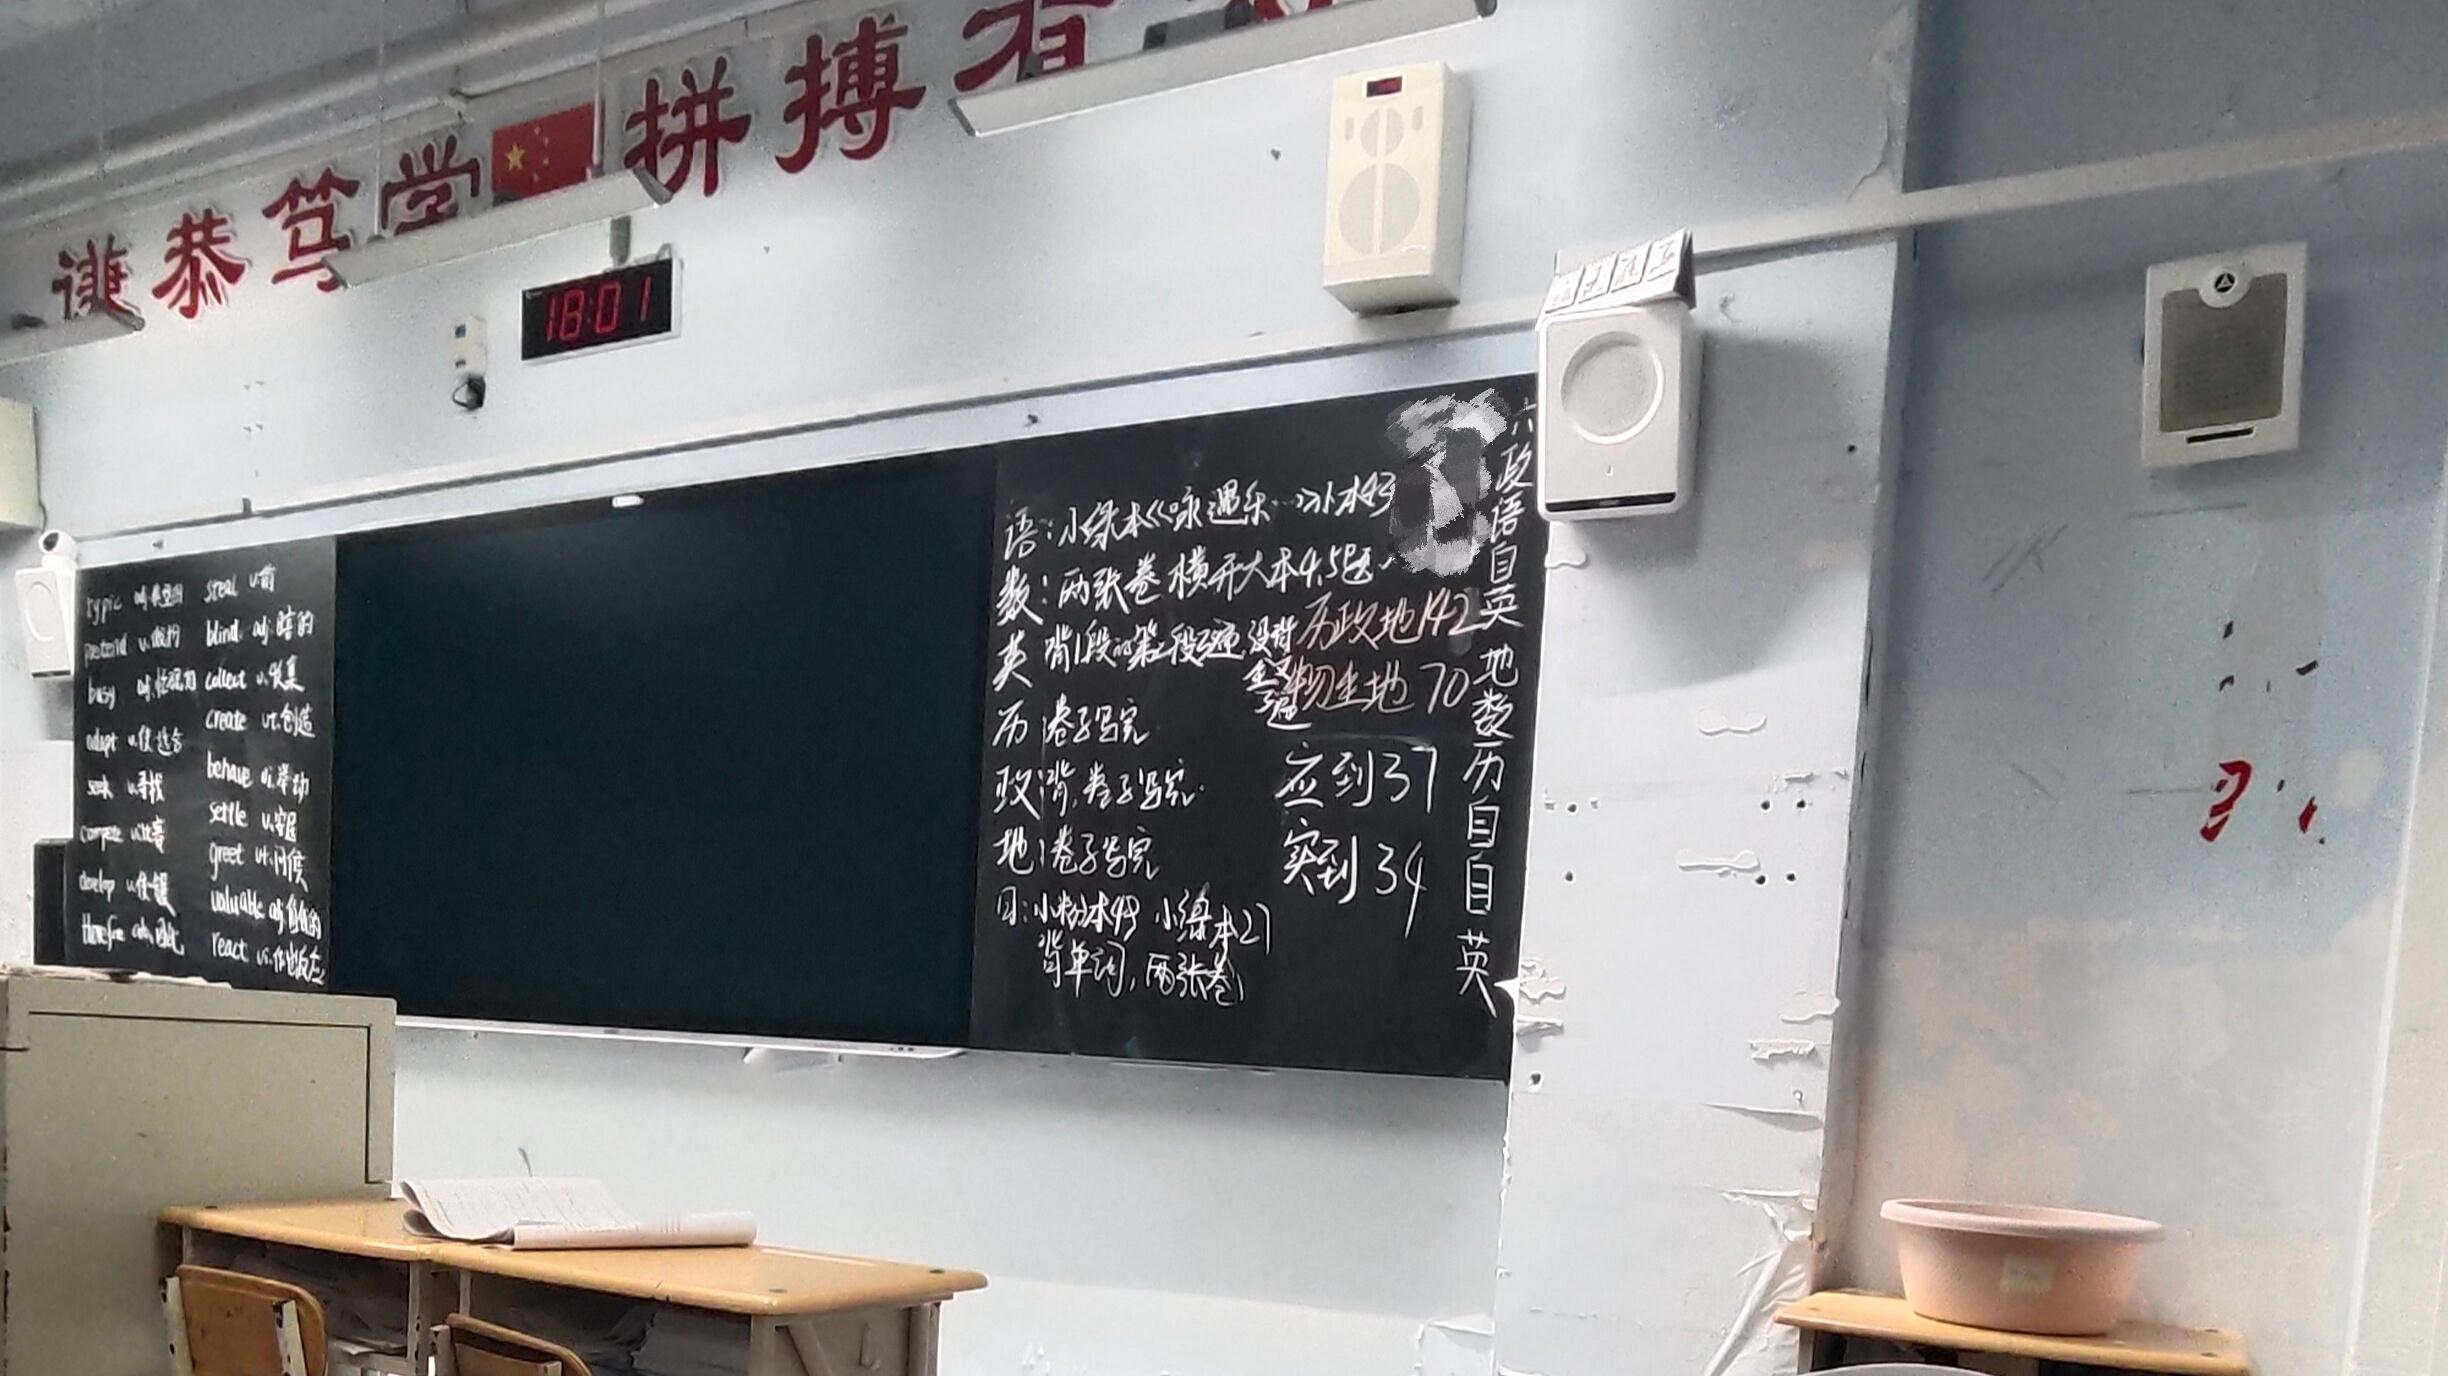 谦恭笃学 拼搏
18:01
typic adj.典型的
pretend v.假扮
busy adj.忙碌的
adapt v.使适合
seek v.寻找
compete v.比赛
develop v.发展
therefore adv.因此
steal v.偷
blind adj.瞎的
collect v.收集
create vt.创造
behave vi.举动
settle v.安居
greet vt.问候
valuable adj.有价值的
react vi.作出反应
语:小绿本《永遇乐…》小本43
数:两张卷 横开大本4.5题
英 背1段 第二段3遍 没背
历政地142
物生地70
历:卷子写完
政:背,卷子写完
地:卷子写完
日:小粉本49 小绿本27
背单词,两张卷
应到37
实到34
六
政
语
自
英
地
数
历
自
自
英